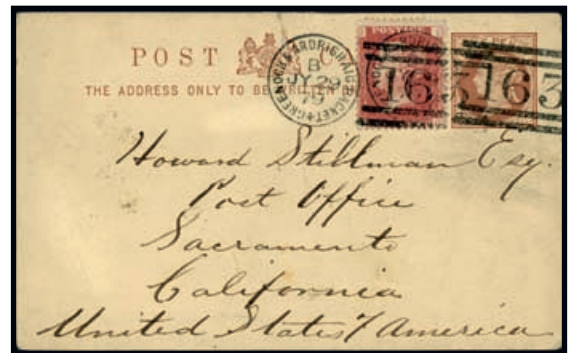 POST C
THE ADDRESS ONLY TO BE WRITTEN
GREENOCK & ARDRISHAIG PACKET
B
JY 29
79
POSTAGE
163
163
Howard Stillman Esq.
Post Office
Sacramento
California
United States / America